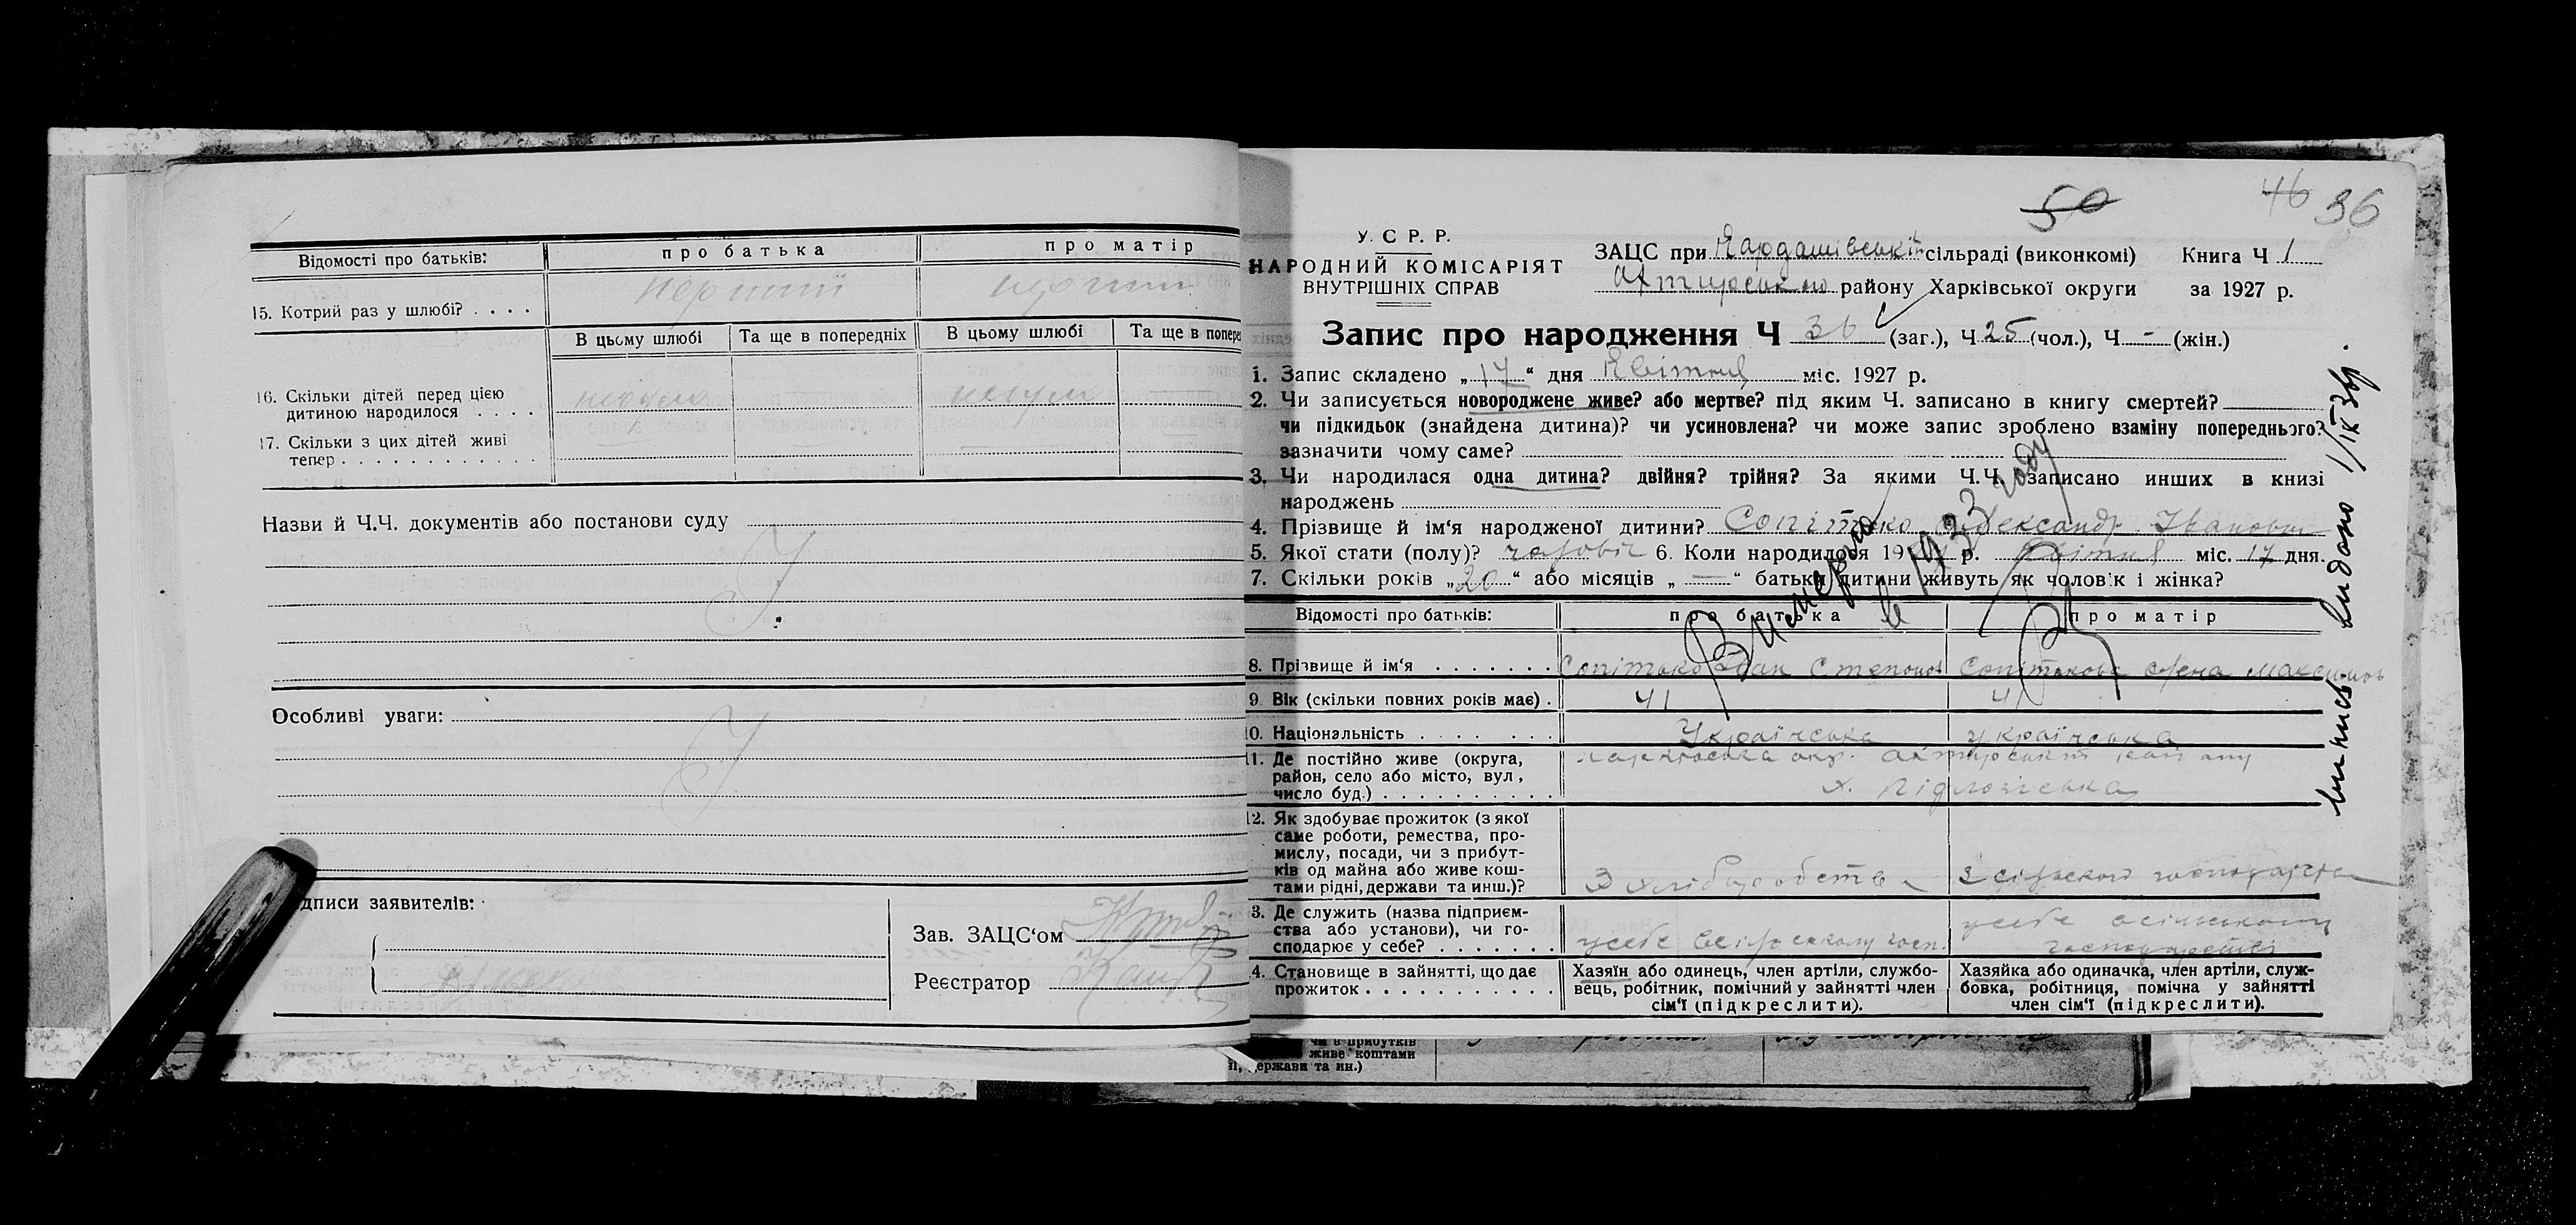 Відомості про батьків:
про батька
про матір
15. Котрий раз у шлюбі? . . . .
перший
В цьому шлюбі
Та ще в попередніх
В цьому шлюбі
Та ще в попере
16. Скільки дітей перед цією
дитиною народилося . . . .
17. Скільки з цих дітей живі
тепер . . . . . . . . . . . .
Назви й Ч.Ч. документів або постанови суду
Особливі уваги:
дписи заявителів:
Зав. ЗАЦС‘ом
Реєстратор
50
46 36
У. С Р. Р.
НАРОДНИЙ КОМІСАРІЯТ
ВНУТРІШНІХ СПРАВ
ЗАЦС при Кардашівській сільраді (виконкомі)
Книга Ч 1
Охтирського району Харківської округи
за 1927 р.
Запис про народження Ч 36 (заг.), Ч 25 (чол.), Ч - (жін.)
1. Запис складено „17“ дня Квітня міс. 1927 р.
2. Чи записується новороджене живе? або мертве? під яким Ч. записано в книгу смертей?
чи підкидьок (знайдена дитина)? чи усиновлена? чи може запис зроблено взаміну попереднього?
зазначити чому саме?
3. Чи народилася одна дитина? двійня? трійня? За якими Ч.Ч. записано инших в книзі
народжень
4. Прізвище й ім‘я народженої дитини? Сопітько Олександр Іванович
5. Якої стати (полу)? чоловіч 6. Коли народилося 19 р. Квітня міс. 17 дня.
7. Скільки років „20“ або місяців „—“ батьки дитини живуть як чоловік і жінка?
Вимерло в 1933 году
Відомості про батьків:
про батька
про матір
8. Прізвище й ім‘я . . . . . . .
Сопітько Іван Степанов
Сопітькова Олена Максимов
9. Вік (скільки повних років має) .
41
41
10. Національність . . . . . . .
Українська
українська
11. Де постійно живе (округа,
район, село або місто, вул,
число буд.) . . . . . . . . . .
Харківська окр. Охтирський район
х.
12. Як здобуває прожиток (з якої
саме роботи, ремества, про-
мислу, посади, чи з прибут-
ків од майна або живе кош-
тами рідні, держави та инш.)?
З хліборобства
з сільского господарства
3. Де служить (назва підприєм-
ства або установи), чи го-
сподарює у себе? . . . . . . .
усебе всільському госп.
усебе всільському
господарстві
4. Становище в зайнятті, що дає
прожиток . . . . . . . . . . . .
Хазяїн або одинець, член артіли, службо-
вець, робітник, помічний у зайнятті член
сім‘ї (підкреслити).
Хазяйка або одиначка, член артіли, служ-
бовка, робітниця, помічна у зайнятті
член сім‘ї (підкреслити).
виписъ видано 1/IX 3
чи з прибутків
живе коштами
ержави та ин.)